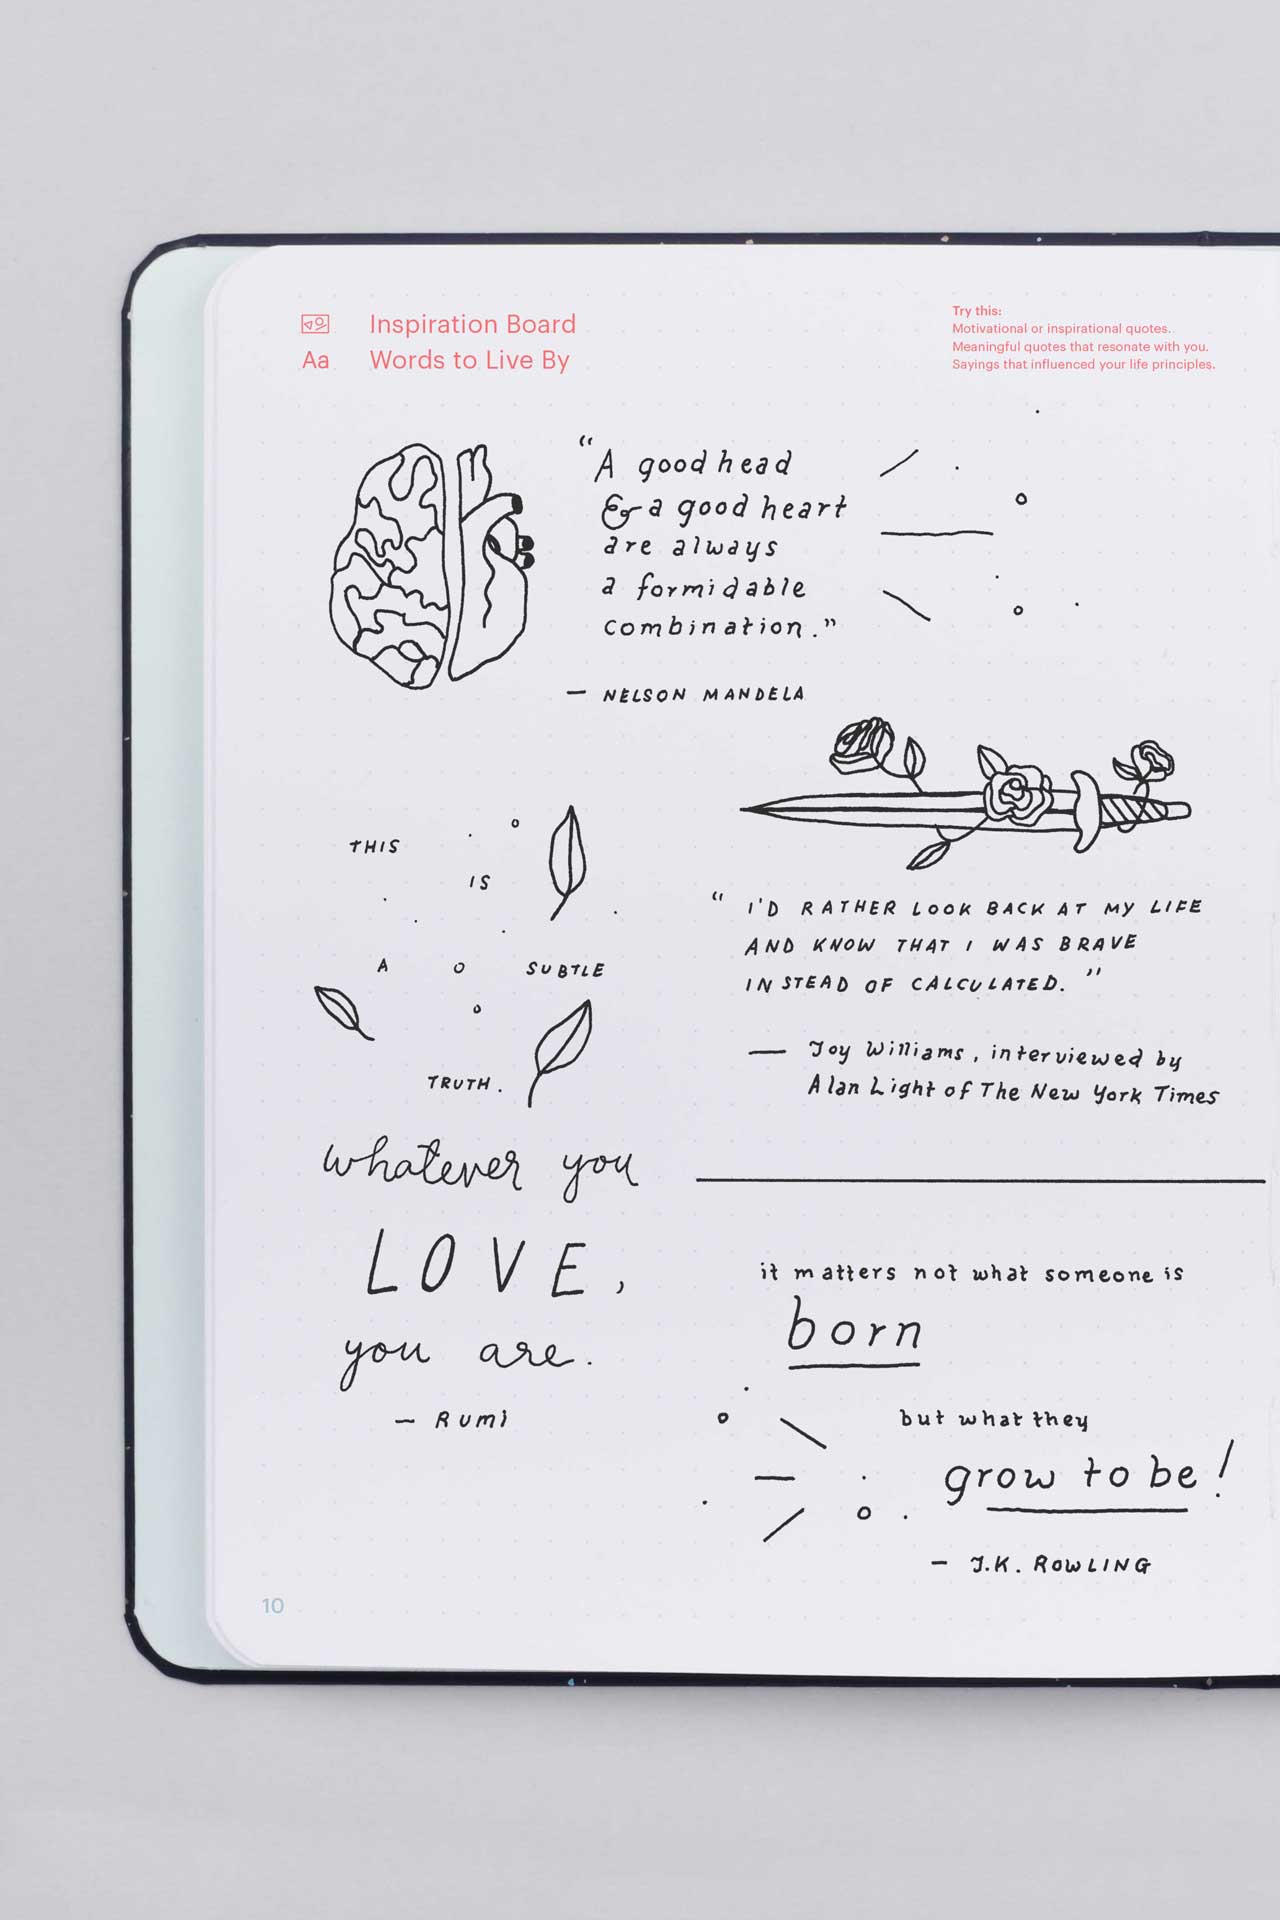 Inspiration Board
Aa Words to Live By
Try this:
Motivational or inspirational quotes.
Meaningful quotes that resonate with you.
Sayings that influenced your life principles.
“A good head
& a good heart
are always
a formidable
combination.”
— NELSON MANDELA
THIS
IS
A SUBTLE
TRUTH.
whatever you
LOVE,
you are.
— RUMI
“ I'D RATHER LOOK BACK AT MY LIFE
AND KNOW THAT I WAS BRAVE
INSTEAD OF CALCULATED. ”
— Joy Williams, interviewed by
Alan Light of The New York Times
it matters not what someone is
born
but what they
grow to be!
— J.K. ROWLING
10